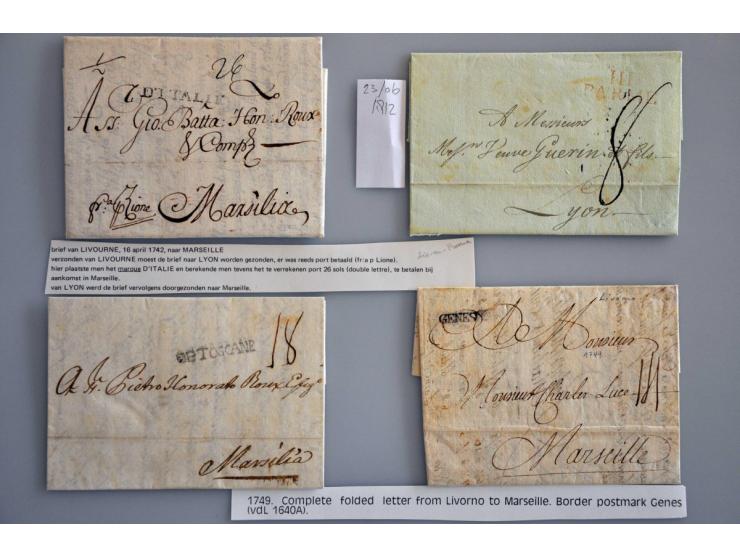 26
D'ITALIE
A Ss. Gio. Batta. Hon. Roux
& Comp.
Marsilia
23/06
1812
111
PARIS
8
A Messieurs
Mess.rs Veuve Guerin & fils
Lyon
brief van LIVOURNE, 16 april 1742, naar MARSEILLE
verzonden van LIVOURNE moest de brief naar LYON worden gezonden, er was reeds port betaald (fr:a p Lione).
hier plaatste men het marque D'ITALIE en berekende men tevens het te verrekenen port 26 sols (double lettre), te betalen bij
aankomst in Marseille.
van LYON werd de brief vervolgens doorgezonden naar Marseille.
DE TOSCANE
18
A Sr. Pietro Honorato Roux
Marsilia
GENES
Livorno
A Monsieur
1749
Monsieur Charles Luce
Marseille
1749. Complete folded letter from Livorno to Marseille. Border postmark Genes
(vdL 1640A).